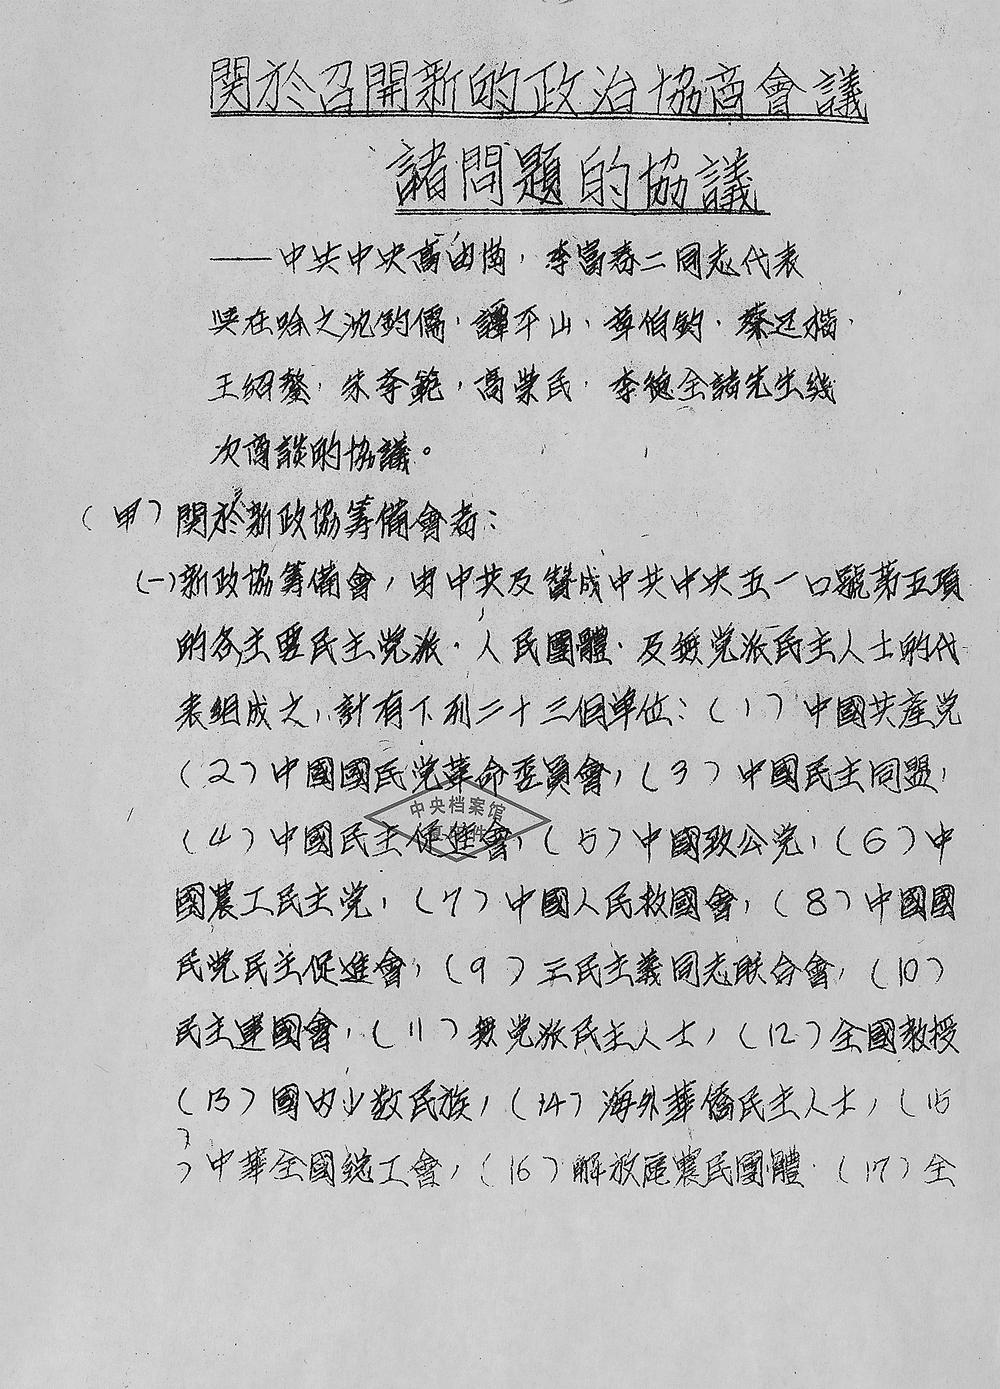 関於召開新的政治協商會議
諸問題的協議
——中共中央高崗，李富春二同志代表
與在哈之沈鈞儒，譚平山，章伯鈞，蔡廷楷，
王紹鏊，朱学範，高崇民，李德全諸先生幾
次商談的協議。
（甲）関於新政協筹備會者：
(一)新政協筹備會，由中共及贊成中共中央五一口號第五項
的各主要民主党派，人民團體，及無党派民主人士的代
表組成之，計有下列二十三個單位：（1）中國共產党
（2）中國國民党革命委員會，（3）中國民主同盟，
（4）中國民主促進會，（5）中國致公党，（6）中
國農工民主党，（7）中國人民救國會，（8）中國國
民党民主促進會，（9）三民主義同志联合會，（10）
民主建國會，（11）無党派民主人士，（12）全國教授
（13）國内少数民族，（14）海外華僑民主人士，（15
）中華全國總工會，（16）解放區農民團體，（17）全
中央档案馆